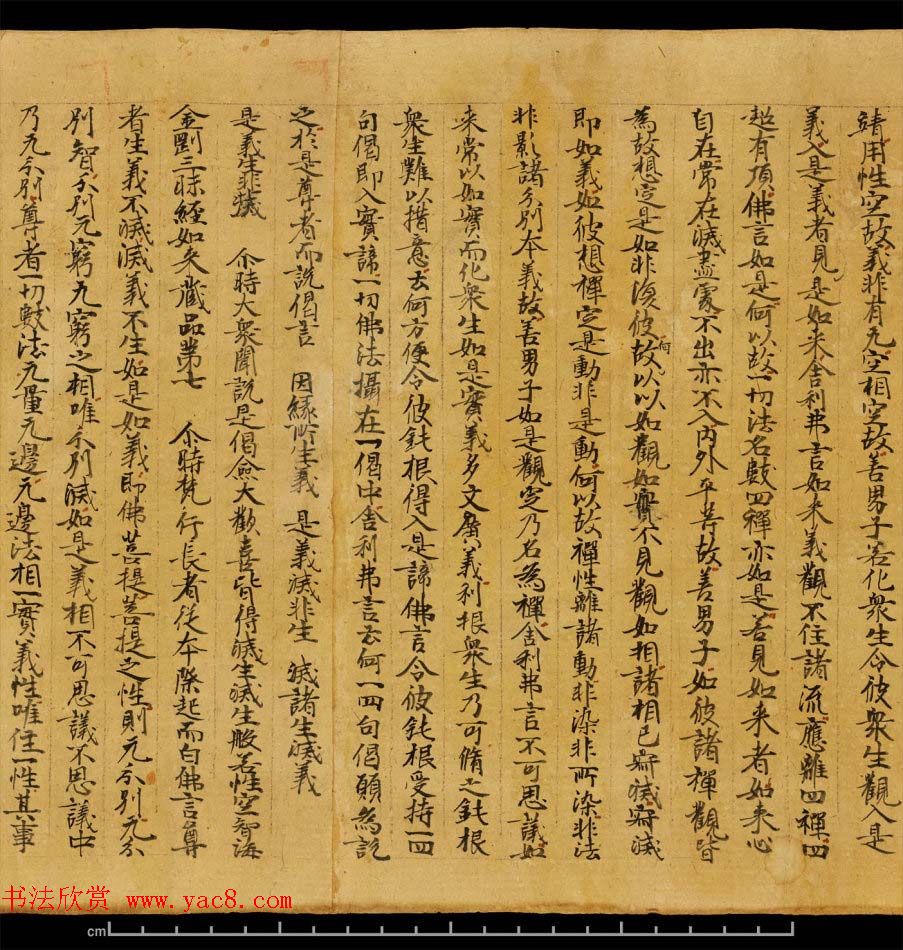 靖用性空故義非有无空相空故善男子若化衆生令彼衆生觀入是
義入是義者見是如来舍利弗言如来義觀不住諸流應離四禪四
超有頂佛言如是何以故一切法名數四禪亦如是若見如来者如来心
自在常在滅盡處不出亦不入内外平等故善男子如彼諸禪觀皆
為故想定是如非復彼何故以以如觀如實不見觀如相諸相已寂滅寂滅
即如義如彼想禪定是動非是動何以故禪性離諸動非染非所染非法
非影諸分別本義故善男子如是觀定乃名為禪舍利弗言不可思議如
来常以如實而化衆生如是實義多文廣義利根衆生乃可脩之鈍根
衆生難以措意云何方便令彼鈍根得入是諦佛言令彼鈍根受持一四
句偈即入實諦一切佛法攝在一偈中舍利弗言云何一四句偈願為說
之於是尊者而說偈言 因緣所生義 是義滅非生 滅諸生滅義
是義生非滅 尒時大衆聞說是偈僉大歡喜皆得滅生滅生般若性空智海
金剛三昧經如来藏品第七 尒時梵行長者從本際起而白佛言尊
者生義不滅滅義不生如是如義即佛菩提菩提之性則无分別无分
別智分別无窮无窮之相唯分別滅如是義相不可思議不思議中
乃无分別尊者一切數法无量无邊无邊法相一實義性唯住一性其事
书法欣赏 www.yac8.com
cm